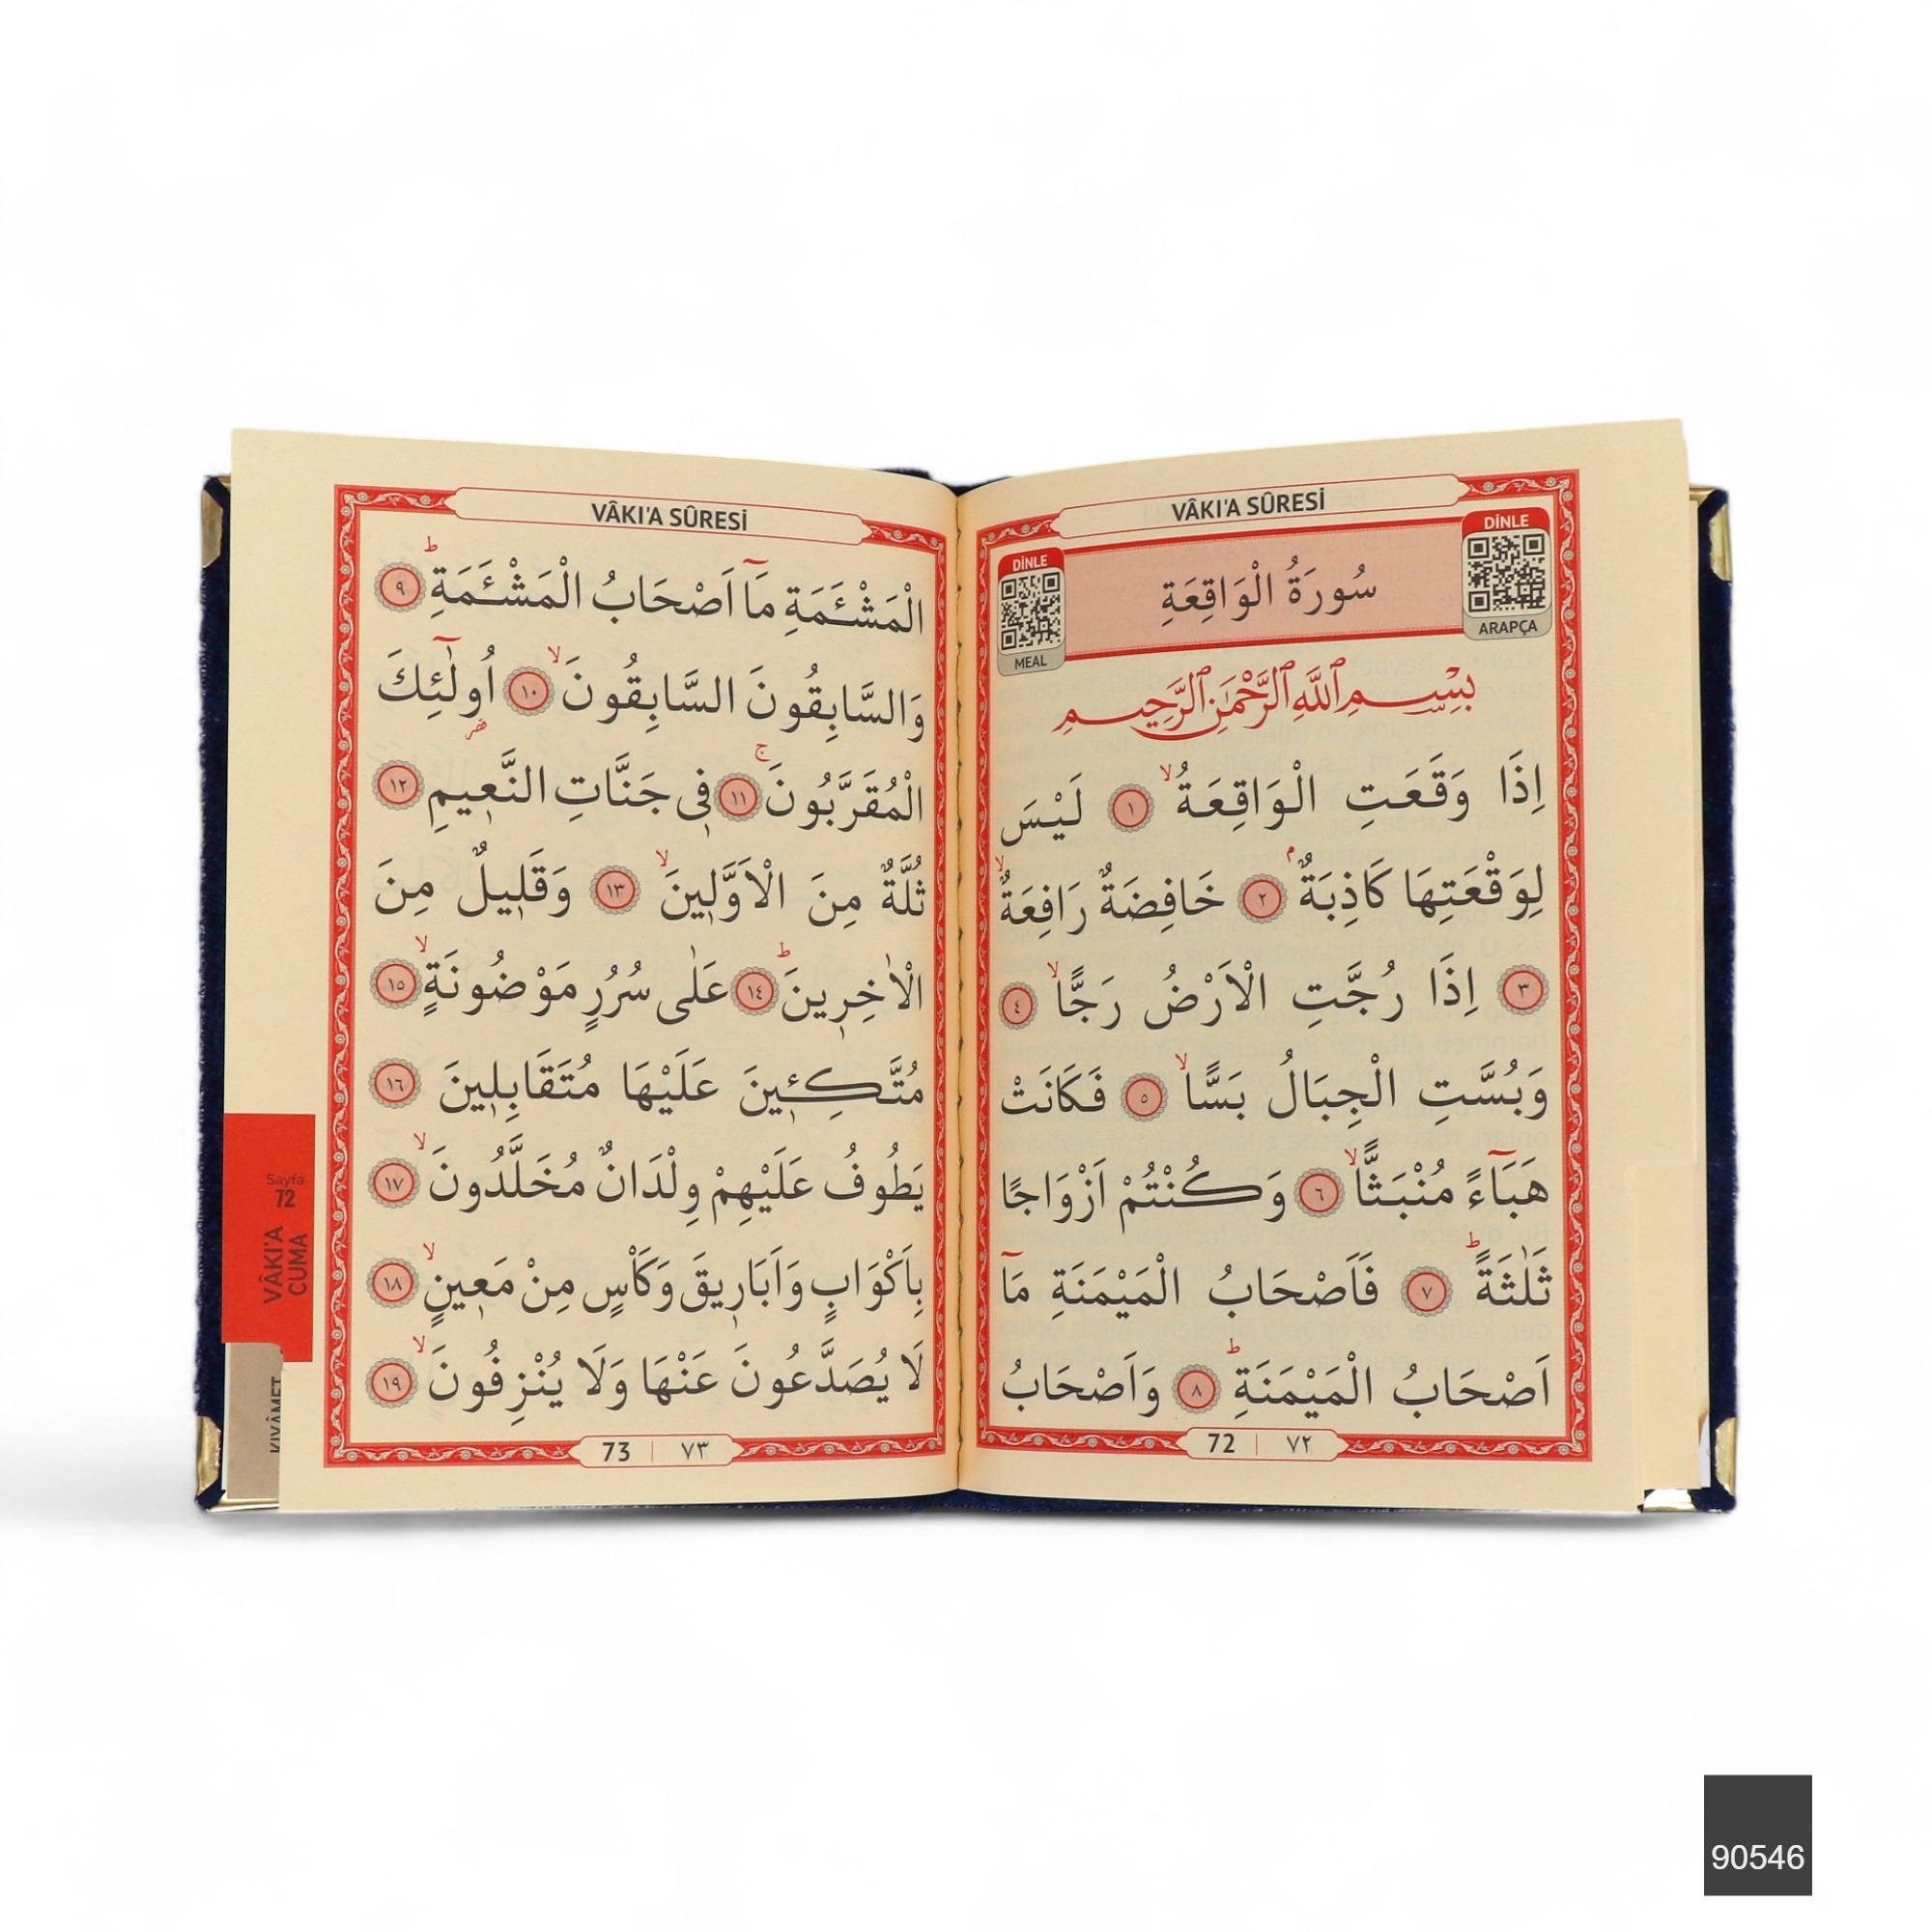 VÂKI'A SÛRESİ
DİNLE
ARAPÇA
سُورَةُ الْوَاقِعَةِ
DİNLE
MEAL
بِسْمِ اللّٰهِ الرَّحْمٰنِ الرَّحِيمِ
اِذَا وَقَعَتِ الْوَاقِعَةُۙ ﴿١﴾ لَيْسَ
لِوَقْعَتِهَا كَاذِبَةٌۢ ﴿٢﴾ خَافِضَةٌ رَافِعَةٌۙ
﴿٣﴾ اِذَا رُجَّتِ الْاَرْضُ رَجًّاۙ ﴿٤﴾
وَبُسَّتِ الْجِبَالُ بَسًّاۙ ﴿٥﴾ فَكَانَتْ
هَبَٓاءً مُنْبَثًّاۙ ﴿٦﴾ وَكُنْتُمْ اَزْوَاجًا
ثَلٰثَةًۜ ﴿٧﴾ فَاَصْحَابُ الْمَيْمَنَةِ مَٓا
اَصْحَابُ الْمَيْمَنَةِۜ ﴿٨﴾ وَاَصْحَابُ
72 | ٧٢
VÂKI'A SÛRESİ
الْمَشْـَٔمَةِ مَٓا اَصْحَابُ الْمَشْـَٔمَةِۜ ﴿٩﴾
وَالسَّابِقُونَ السَّابِقُونَۙ ﴿١٠﴾ اُو۬لٰٓئِكَ
الْمُقَرَّبُونَۚ ﴿١١﴾ ف۪ي جَنَّاتِ النَّع۪يمِ ﴿١٢﴾
ثُلَّةٌ مِنَ الْاَوَّل۪ينَۙ ﴿١٣﴾ وَقَل۪يلٌ مِنَ
الْاٰخِر۪ينَۜ ﴿١٤﴾ عَلٰى سُرُرٍ مَوْضُونَةٍۙ ﴿١٥﴾
مُتَّكِـ۪ٔينَ عَلَيْهَا مُتَقَابِل۪ينَ ﴿١٦﴾
يَطُوفُ عَلَيْهِمْ وِلْدَانٌ مُخَلَّدُونَۙ ﴿١٧﴾
بِاَكْوَابٍ وَاَبَار۪يقَ وَكَاْسٍ مِنْ مَع۪ينٍۙ ﴿١٨﴾
لَا يُصَدَّعُونَ عَنْهَا وَلَا يُنْزِفُونَۙ ﴿١٩﴾
73 | ٧٣
Sayfa
72
VÂKI'A
CUMA
KIYÂMET
90546